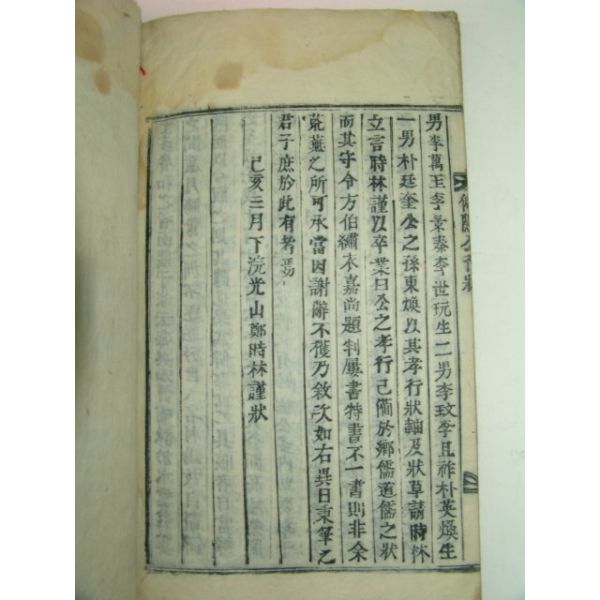 男李萬玉李章奏李世玩生二男李玟李且祚朴英煥生
一男朴廷奎公之孫東煥以其孝行狀軸及狀草請時林
立言時林謹以卒業曰公之孝行已備於鄉儒道儒之狀
而其守令方伯繡衣嘉尚題判屢書特書不一書則非余
蕘之所可承當因謝辭不獲乃敘次如右異日秉筆之
君子庶於此有考焉
己亥三月下浣光山鄭時林謹狀
公行狀